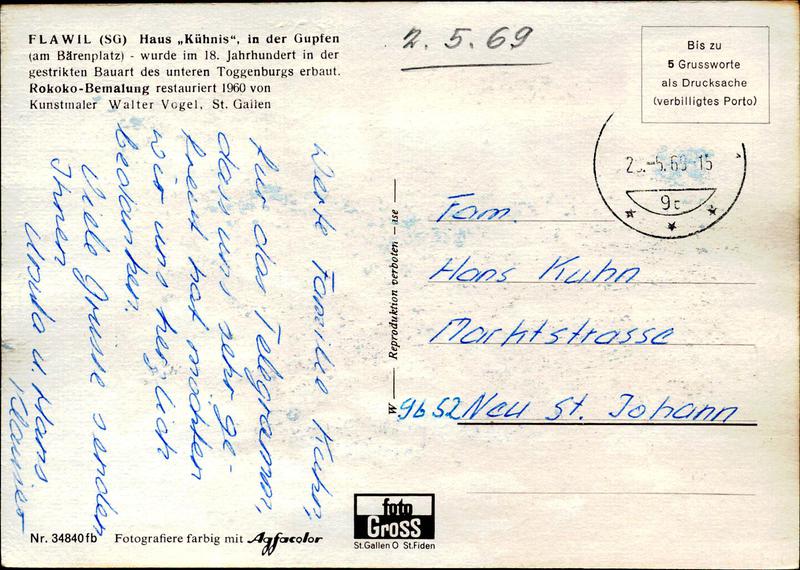 FLAWIL (SG) Haus „Kühnis", in der Gupfen
(am Bärenplatz) - wurde im 18. Jahrhundert in der
gestrikten Bauart des unteren Toggenburgs erbaut.
Rokoko-Bemalung restauriert 1960 von
Kunstmaler Walter Vogel, St. Gallen
2. 5. 69
Bis zu
5 Grussworte
als Drucksache
(verbilligtes Porto)
-5.69-15
9c
Werte Familie Kuhn,
für das Telegramm,
dass uns sehr ge-
freut hat möchten
wir uns herzlich
bedanken.
Viele Grüsse senden
Ihnen
Ursula u Hans
Klauser
W — Reproduktion verboten - use —
Fam.
Hans Kuhn
Marktstrasse
9652 Neu St. Johann
Nr. 34840fb Fotografiere farbig mit Agfacolor
foto
Gross
St.Gallen O St.Fiden